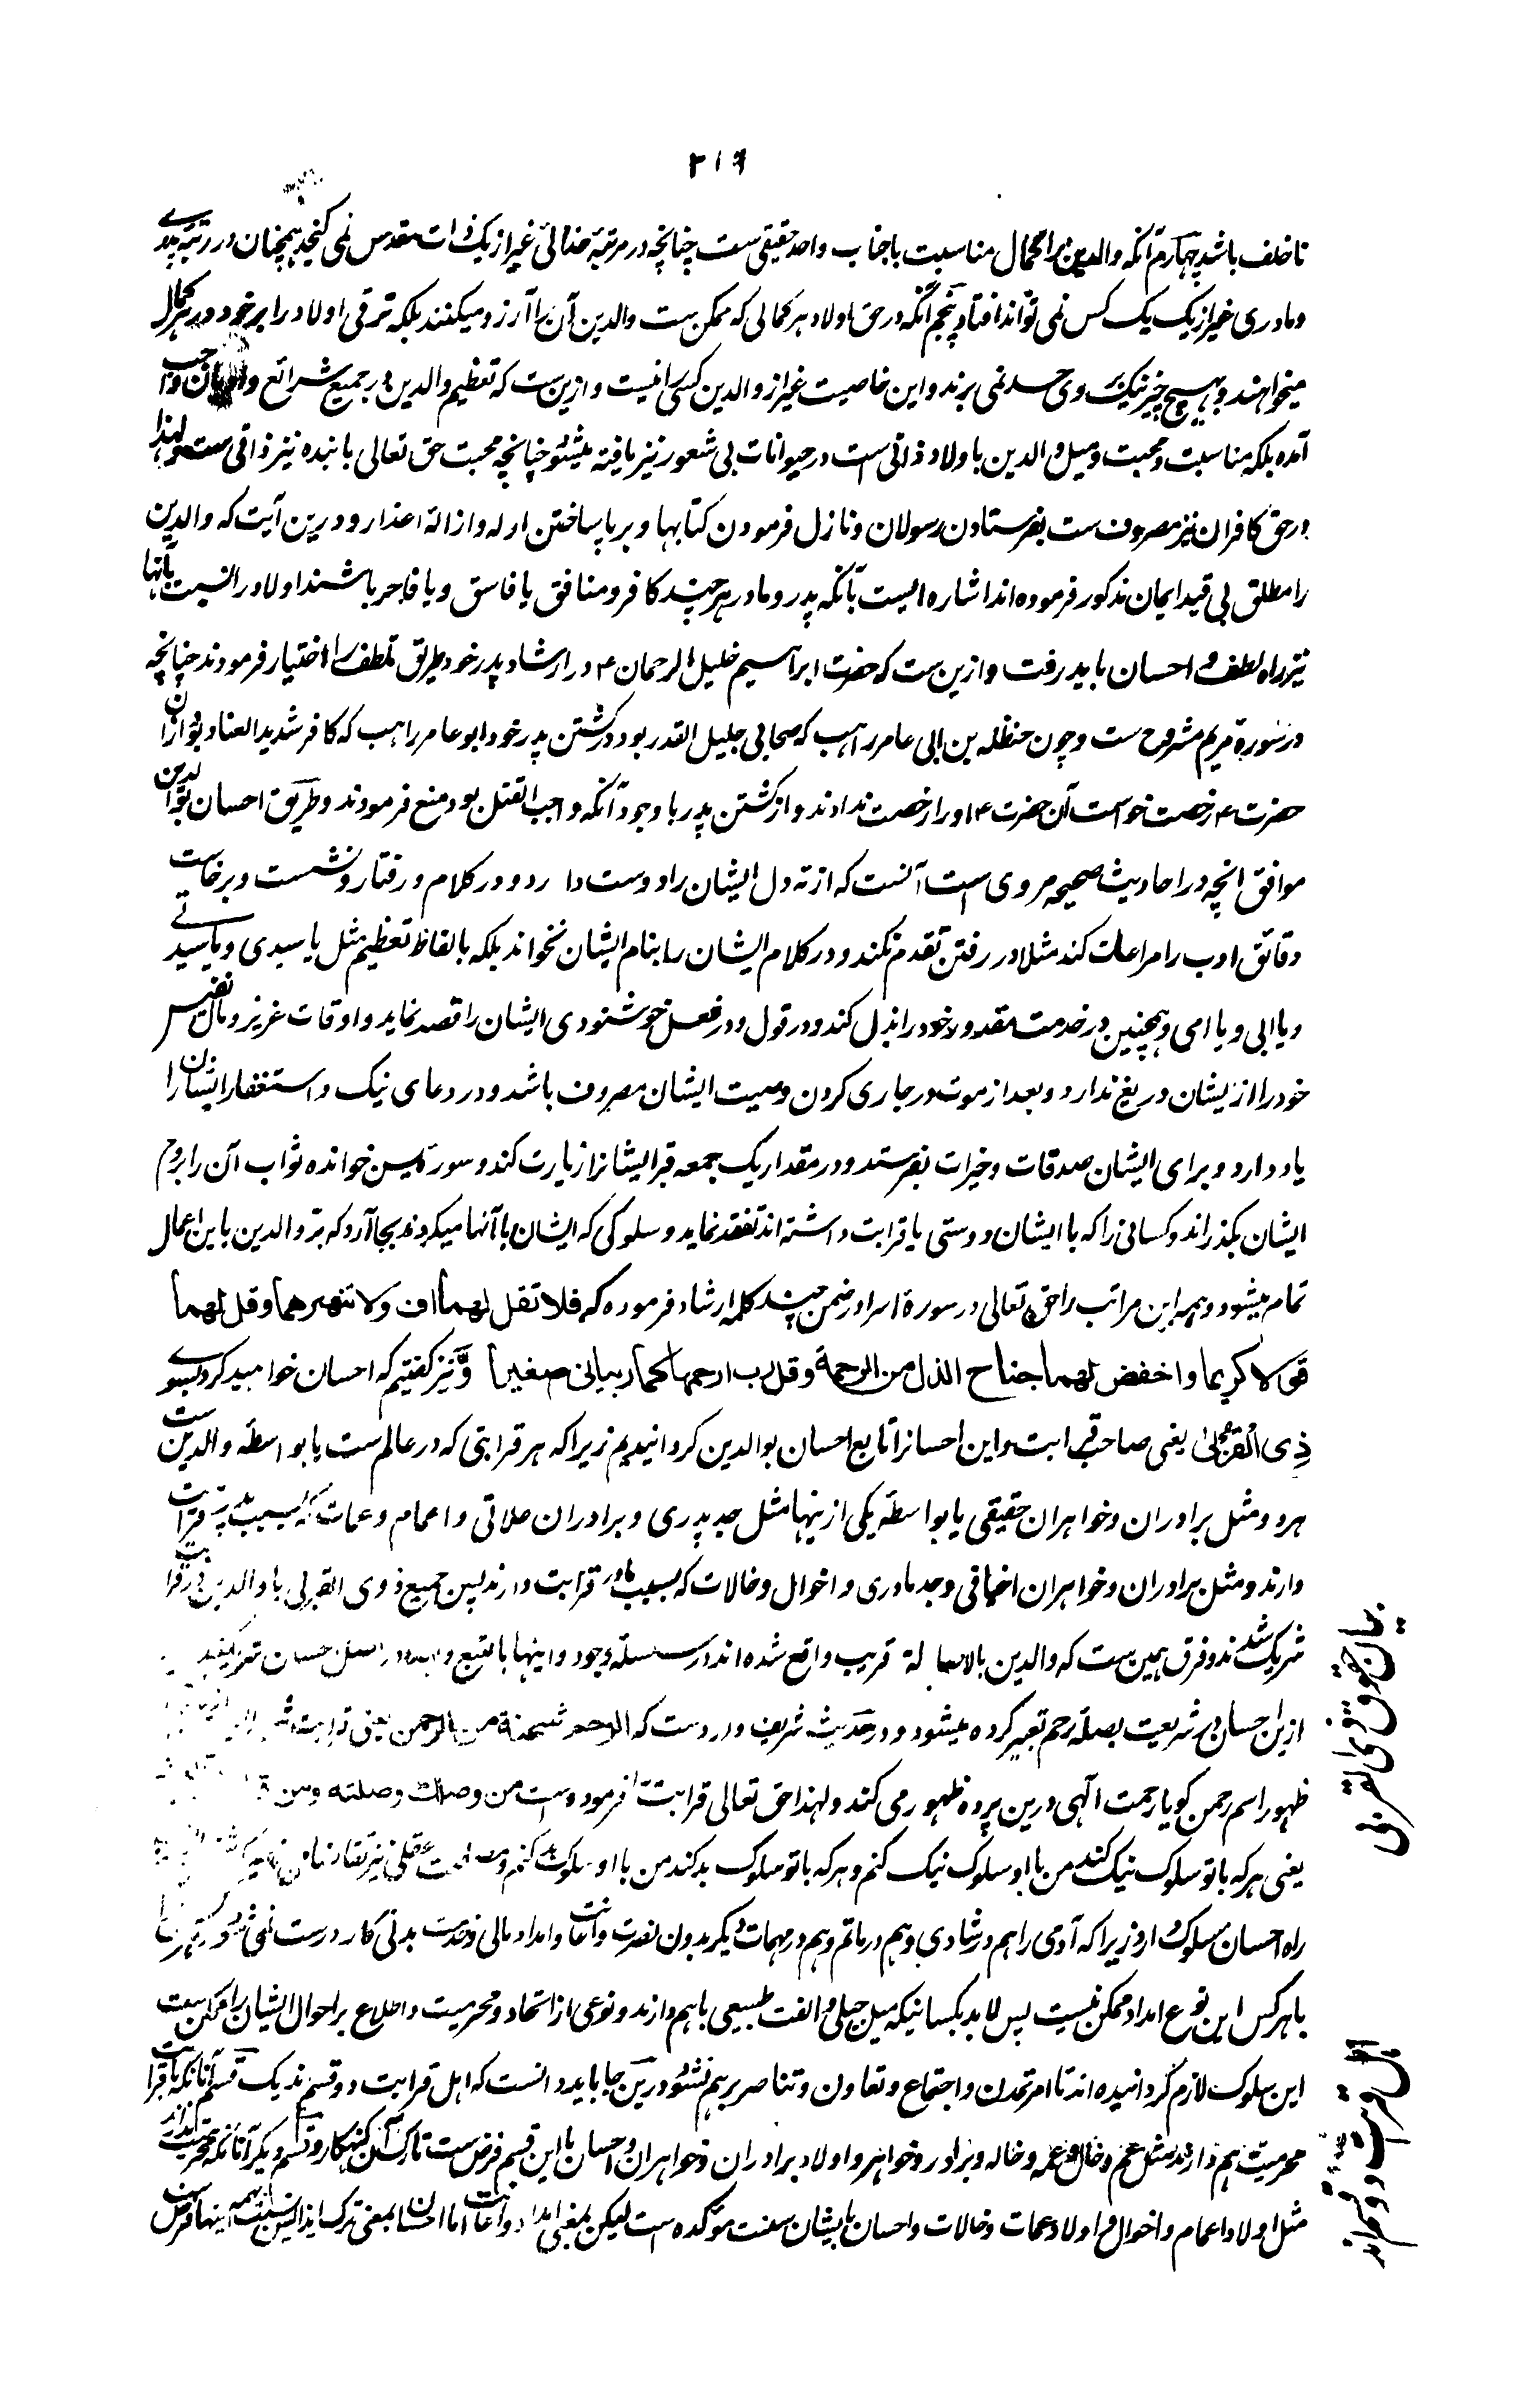 ۲۱۶
ناخلف باشد چهارم آنکه والدین را کمال مناسبت باجناب واحد حقیقی ست چنانچه در مرتبهٔ خدائی غیر از یک ذات مقدس نمی گنجد همچنان در رتبهٔ پدری
و مادری غیر از یک یک کس نمی تواند افتاد پنجم آنکه در حق اولاد هر کمالی که ممکن ست والدین آن را آرزو میکنند بلکه ترقی اولاد را بر خود در هر کمال
میخواهند و بهیچ چیز نیک بر وی حسد نمی برند و این خاصیت غیر از والدین کسی را نیست و ازین ست که تعظیم والدین در جمیع شرائع و ادیان واجب
آمده بلکه مناسبت و محبت و میل والدین با ولاد ذاتی است در حیوانات بی شعور نیز یافته میشود چنانچه محبت حق تعالی با بنده نیز ذاتی ست و لهذا
در حق کافران نیز مصروف ست بفرستادن رسولان و نازل فرمودن کتابها و برپا ساختن ادله و ازالهٔ اعذار و درین آیت که والدین
را مطلق بی قید ایمان مذکور فرموده اند اشاره الیست بآنکه پدر و مادر هر چند کافر و منافق یا فاسق و یا فاجر باشند اولاد را نسبت بآنها
نیز راه لطف و احسان باید رفت و ازین ست که حضرت ابراهیم خلیل الرحمان ۴ در ارشاد پدر خود طریق تلطف را اختیار فرمودند چنانچه
در سورهٔ مریم مشروح ست و چون حنظله بن ابی عامر راهب که صحابی جلیل القدر بود در کشتن پدر خود ابو عامر راهب که کافر شدید العناد بود از آن
حضرت ۴ رخصت خواست آن حضرت ۴ او را رخصت ندادند و از کشتن پدر با وجود آنکه واجب القتل بود منع فرمودند و طریق احسان بوالدین
موافق انچه در احادیث صحیحه مروی است آنست که از ته دل ایشان را دوست دارد و در کلام و رفتار و نشست و برخاست
دقائق ادب را مراعات کند مثلا در رفتن تقدم نکند و در کلام ایشان را بنام ایشان نخواند بلکه بالفاظ تعظیم مثل یا سیدی و یا سیدتی
و یا ابی و یا امی و همچنین در خدمت مقدور خود را بذل کند و در قول و در فعل خوشنودی ایشان را قصد نماید و اوقات عزیز و مال نفیس
خود را از ایشان دریغ ندارد و بعد از موت در جاری کردن وصیت ایشان مصروف باشد و در دعای نیک و استغفار ایشان را
یاد دارد و برای ایشان صدقات و خیرات بفرستد و در مقدار یک جمعه قبر ایشانرا زیارت کند و سورهٔ یسن خوانده ثواب آن را بروح
ایشان بگذراند و کسانی را که با ایشان دوستی یا قرابت داشته اند تفقد نماید و سلوکی که ایشان با آنها میکردند بجا آرد که بر والدین باین اعمال
تمام میشود و همه این مراتب را حق تعالی در سورهٔ اسرا در ضمن چند کلمه ارشاد فرموده که فلا تقل لهما اف ولا تنهرهما وقل لهما
قولا کریما واخفض لهما جناح الذل من الرحمة وقل رب ارحمهما کما ربیانی صغیرا و نیز گفتیم که احسان خواهید کرد بسوی
ذِی القُربیٰ یعنی صاحب قرابت و این احسانرا تابع احسان بوالدین گردانیدیم زیرا که هر قرابتی که در عالم ست یا بواسطهٔ والدین ست
هر دو مثل برادران و خواهران حقیقی یا بواسطهٔ یکی ازینها مثل جد پدری و برادران علاتی و اعمام و عمات که بسبب پدر قرابت
دارند و مثل برادران و خواهران اخیافی و جد مادری و اخوال و خالات که بسبب مادر قرابت دارند پس جمیع ذوی القربی با والدین در قرابت
شریک شدند و فرق همین ست که والدین بالاصالة قریب واقع شده اند در سلسلهٔ وجود و اینها بالتبع و لهذا در اصل احسان شریک
ازین احسان در شریعت بصلهٔ رحم تعبیر کرده میشود و در حدیث شریف وارد ست که الرحم شجنة من الرحمن یعنی قرابت
ظهور اسم رحمن گویا رحمت الهی درین پرده ظهور می کند و لهذا حق تعالی قرابت را فرموده است من وصلک وصلته ومن
یعنی هر که با تو سلوک نیک کند من با او سلوک نیک کنم و هر که با تو سلوک بد کند من با او سلوک بد کنم و مصلحت عقلی نیز تقاضا
راه احسان مسلوک دارد زیرا که آدمی را هم در شادی و هم در ماتم و هم در مهمات دیگر بدون نصرت و اعانت و امداد مالی و خدمت بدنی کار درست نمی شود
با هر کس این نوع امداد ممکن نیست پس لابد بکسانیکه میل جبلی و الفت طبیعی باهم دارند و نوعی از اتحاد و محرمیت و اطلاع بر احوال ایشان را ممکن ست
این سلوک لازم گردانیده اند تا امر تمدن و اجتماع و تعاون و تناصر برهم نشود درین جا باید دانست که اهل قرابت دو قسم اند یک قسم آنانکه با قرابت
محرمیت هم دارند مثل عم و خال و عمه و خاله و برادر و خواهر و اولاد برادران و خواهران و احسان با این قسم فرض ست تارک آن گنهگار و قسم دیگر آنانکه محرمیت ندارند
مثل اولاد اعمام و اخوال و اولاد عمات و خالات و احسان با ایشان سنت موکده است لیکن بمعنی امداد و اعانت اما احسان بمعنی ترک ایذا پس نسبت بهمه اینها فرض ست
بیان حقوق ذی القربی
اهل قرابت دو قسم اند